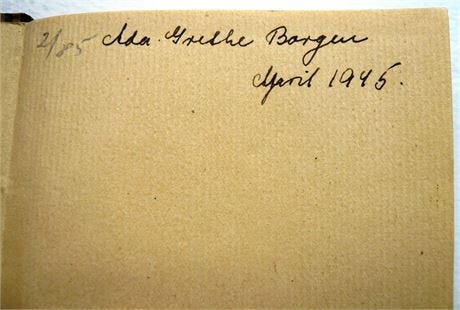 2/85 Ada Grethe Borgen
April 1945.